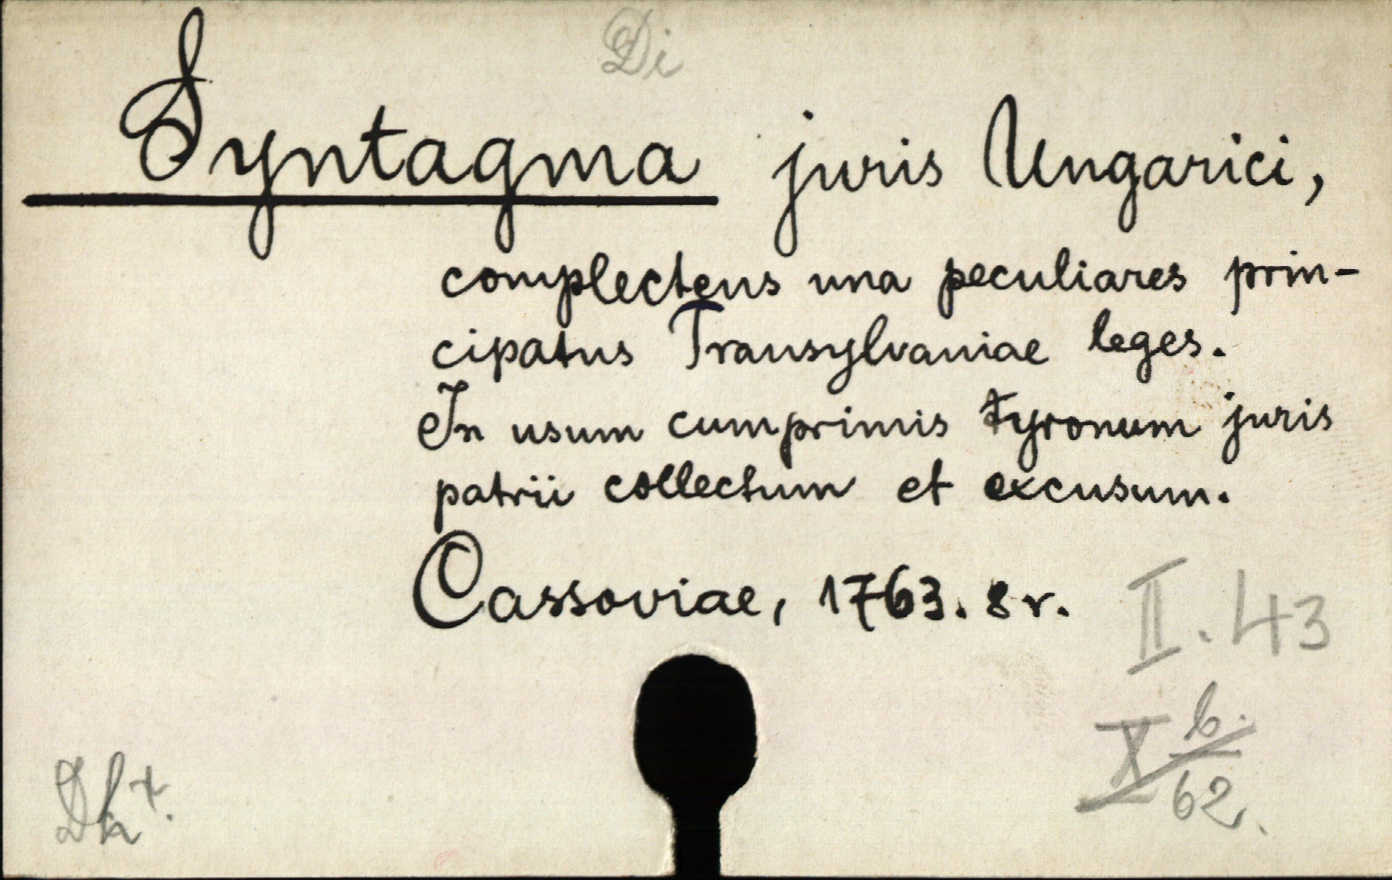 Di
Syntagma juris Ungarici,
complectens una peculiares prin-
cipatus Transylvaniae leges.
In usum cumprimis tyronum juris
patrii collectum et excusum.
Cassoviae, 1763. 8r.
II. 43
X b.
62.